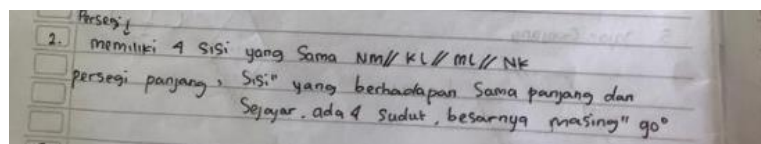 Persegi!
2. memiliki 4 sisi yang sama NM // KL // ML // NK
persegi panjang, sisi" yang berhadapan sama panjang dan
Sejajar. ada 4 sudut, besarnya masing" 90°